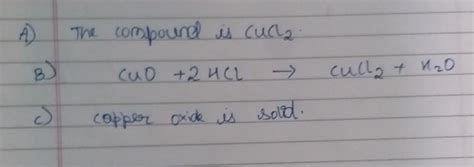 A) The compound is CuCl2.
B) CuO + 2HCl → CuCl2 + H2O
C) copper oxide is solid.